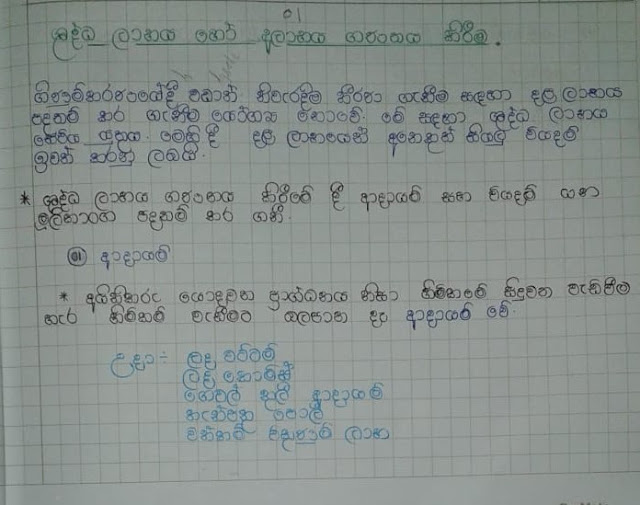 01
ශුද්ධ ලාභය හෝ අලාභය ගණනය කිරීම.
ගිණුම්කරණයේදී වඩාත් නිවැරදිම තීරණ ගැනීම සඳහා දළ ලාභය
පදනම් කර ගැනීම යෝග්‍ය නොවේ. මේ සඳහා ශුද්ධ ලාභය
සෙවිය යුතුය. මෙහි දී දළ ලාභයෙන් අනෙකුත් සියලු වියදම්
ඉවත් කරනු ලබයි.
* ශුද්ධ ලාභය ගණනය කිරීමේ දී ආදායම් සහ වියදම් යන
මූලිකාංග පදනම් කර ගනී.
01 ආදායම්
* අයිතිකරු යොදවන ප්‍රාග්ධනය නිසා හිමිකමේ සිදුවන වැඩිවීම
හැර හිමිකම් වැඩිවීමට බලපාන දෑ ආදායම් වේ.
උදා :- ලද වට්ටම්
ලද කොමිස්
ගෙවල් කුලී ආදායම්
තැන්පතු පොලී
වත්කම් අලෙවි ලාභ